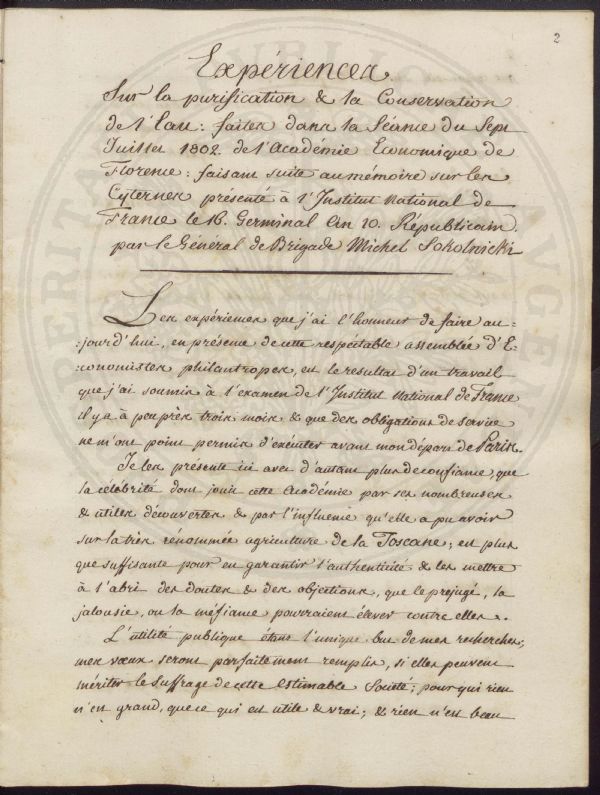 2
Expériences
Sur la purification & la Conservation
de l'Eau: faites dans la Séance du Sept
Juillet 1802. de l'Académie Economique de
Florence: faisant suite au mémoire sur les
Cyternes présenté à l'Institut National de
France le 16. Germinal An 10. Républicain.
par le Général de Brigade Michel Sokolnicki
Les expériences que j'ai l'honneur de faire au=
=jourd'hui, en présence de cette respectable assemblée d'E=
=conomistes philantropes, est le resultat d'un travail
que j'ai soumis à l'examen de l'Institut National de France
il y a à peu près trois mois & que des obligations de service
ne m'ont point permis d'exécuter avant mon départ de Paris.
Je les présente ici avec d'autant plus de confiance, que
la célébrité dont jouit cette Académie par ses nombreuses
& utiles découvertes & par l'influence qu'elle a pu avoir
sur la très rénommée agriculture de la Toscane, est plus
que suffisante pour en garantir l'authenticité & les mettre
à l'abri des doutes & des objections, que le prejugé, la
jalousie, ou la méfiance pourraient élever contre elles.
L'utilité publique étant l'unique but de mes recherches,
mes vœux seront parfaitement remplis, si elles peuvent
mériter le suffrage de cette estimable Société; pour qui rien
n'est grand, que ce qui est utile & vrai; & rien n'est beau